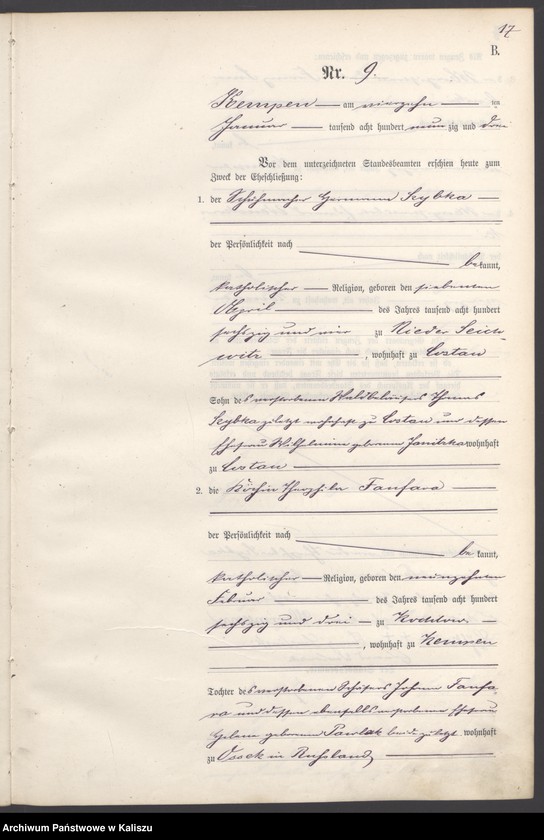 17
B.
Nr. 9.
Kempen am vierzehn ten
Januar tausend acht hundert neunzig und drei
Vor dem unterzeichneten Standesbeamten erschien heute zum
Zweck der Eheschließung:
1. der Schuhmacher Hermann Scybka
der Persönlichkeit nach
bekannt,
katholischer Religion, geboren den siebenten
April des Jahres tausend acht hundert
sechszig und vier zu Nieder Seich-
witz, wohnhaft zu Costau
Sohn des verstorbenen Waldbelaufers Thomas
Scybka zuletzt wohnhaft zu Costau und dessen
Ehefrau Wilhelmine geborenen wohnhaft
zu Costau
2. die Köchin Theophila Fanfara
der Persönlichkeit nach
bekannt,
katholischer Religion, geboren den neunzehnten
Februar des Jahres tausend acht hundert
sechszig und drei zu
, wohnhaft zu Kempen
Tochter des verstorbenen Schäfers Johann Fanfa-
ra und dessen ebenfalls verstorbene Ehefrau
Helene geborenen Pawlak beide zuletzt wohnhaft
zu Ossek in Russland
Archiwum Państwowe w Kaliszu